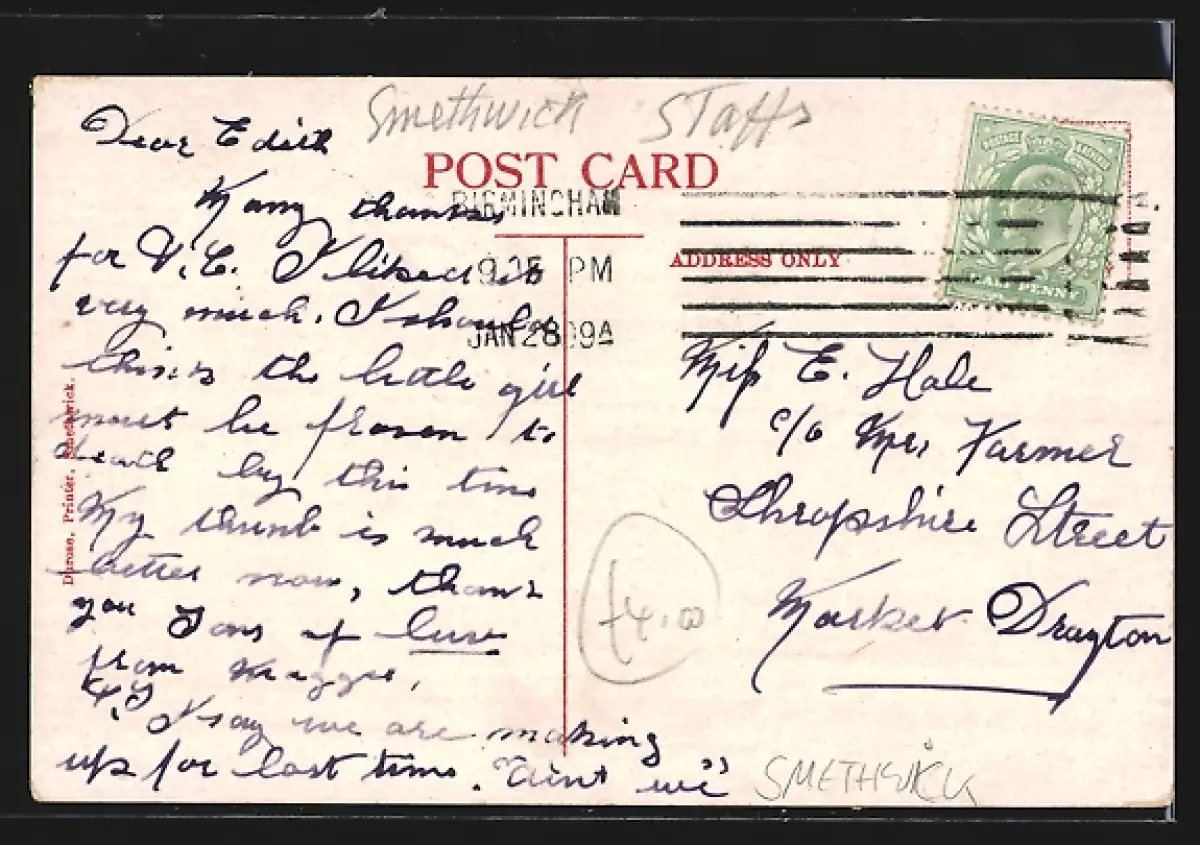 Smethwick Staffs
POST CARD
BIRMINGHAM
9.05 PM
JAN 28 09
ADDRESS ONLY
HALF PENNY
Dear Edith
Many thanks
for V.C. I liked it
very much. I should
think the little girl
must be frozen to
death by this time
My thumb is much
better now, thank
you Tons of love
from Maggie,
I say we are making
up for lost time. "aint we"
Miss E. Hale
c/o Mr. Farmer
Shropshire Street
Market Drayton
£4.00
SMETHWICK
Durose, Printer, Smethwick.